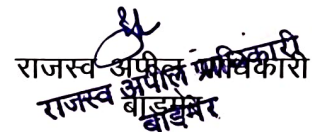 राजस्व अपील प्राधिकारी
बाडमेर
राजस्व अपील प्राधिकारी
बाड़मेर